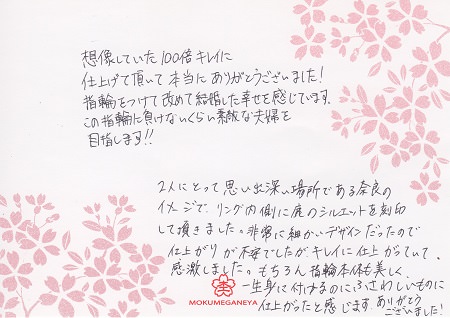 想像していた100倍キレイに
仕上げて頂いて本当にありがとうございました!
指輪をつけて改めて結婚した幸せを感じています。
この指輪に負けないくらい素敵な夫婦を
目指します!!
2人にとって思い出深い場所である奈良の
イメージで、リング内側に鹿のシルエットを刻印
して頂きました。非常に細かいデザインだったので
仕上がりが不安でしたが、キレイに仕上がっていて、
感激しました。もちろん指輪本体も美しく、
一生身に付けるのにふさわしいものに
仕上がったと感じます。ありがとう
ございました!
MOKUMEGANEYA